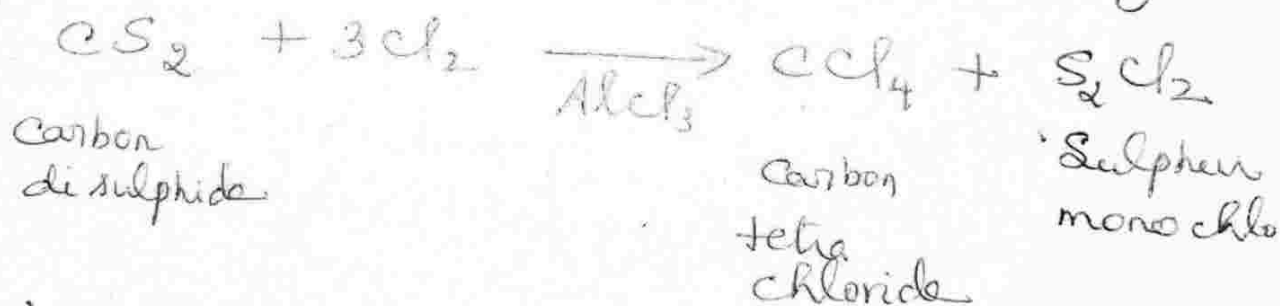 CS2 + 3Cl2 → CCl4 + S2Cl2
AlCl3
Carbon
di sulphide
Carbon
tetra
chloride
Sulpheur
mono chlo